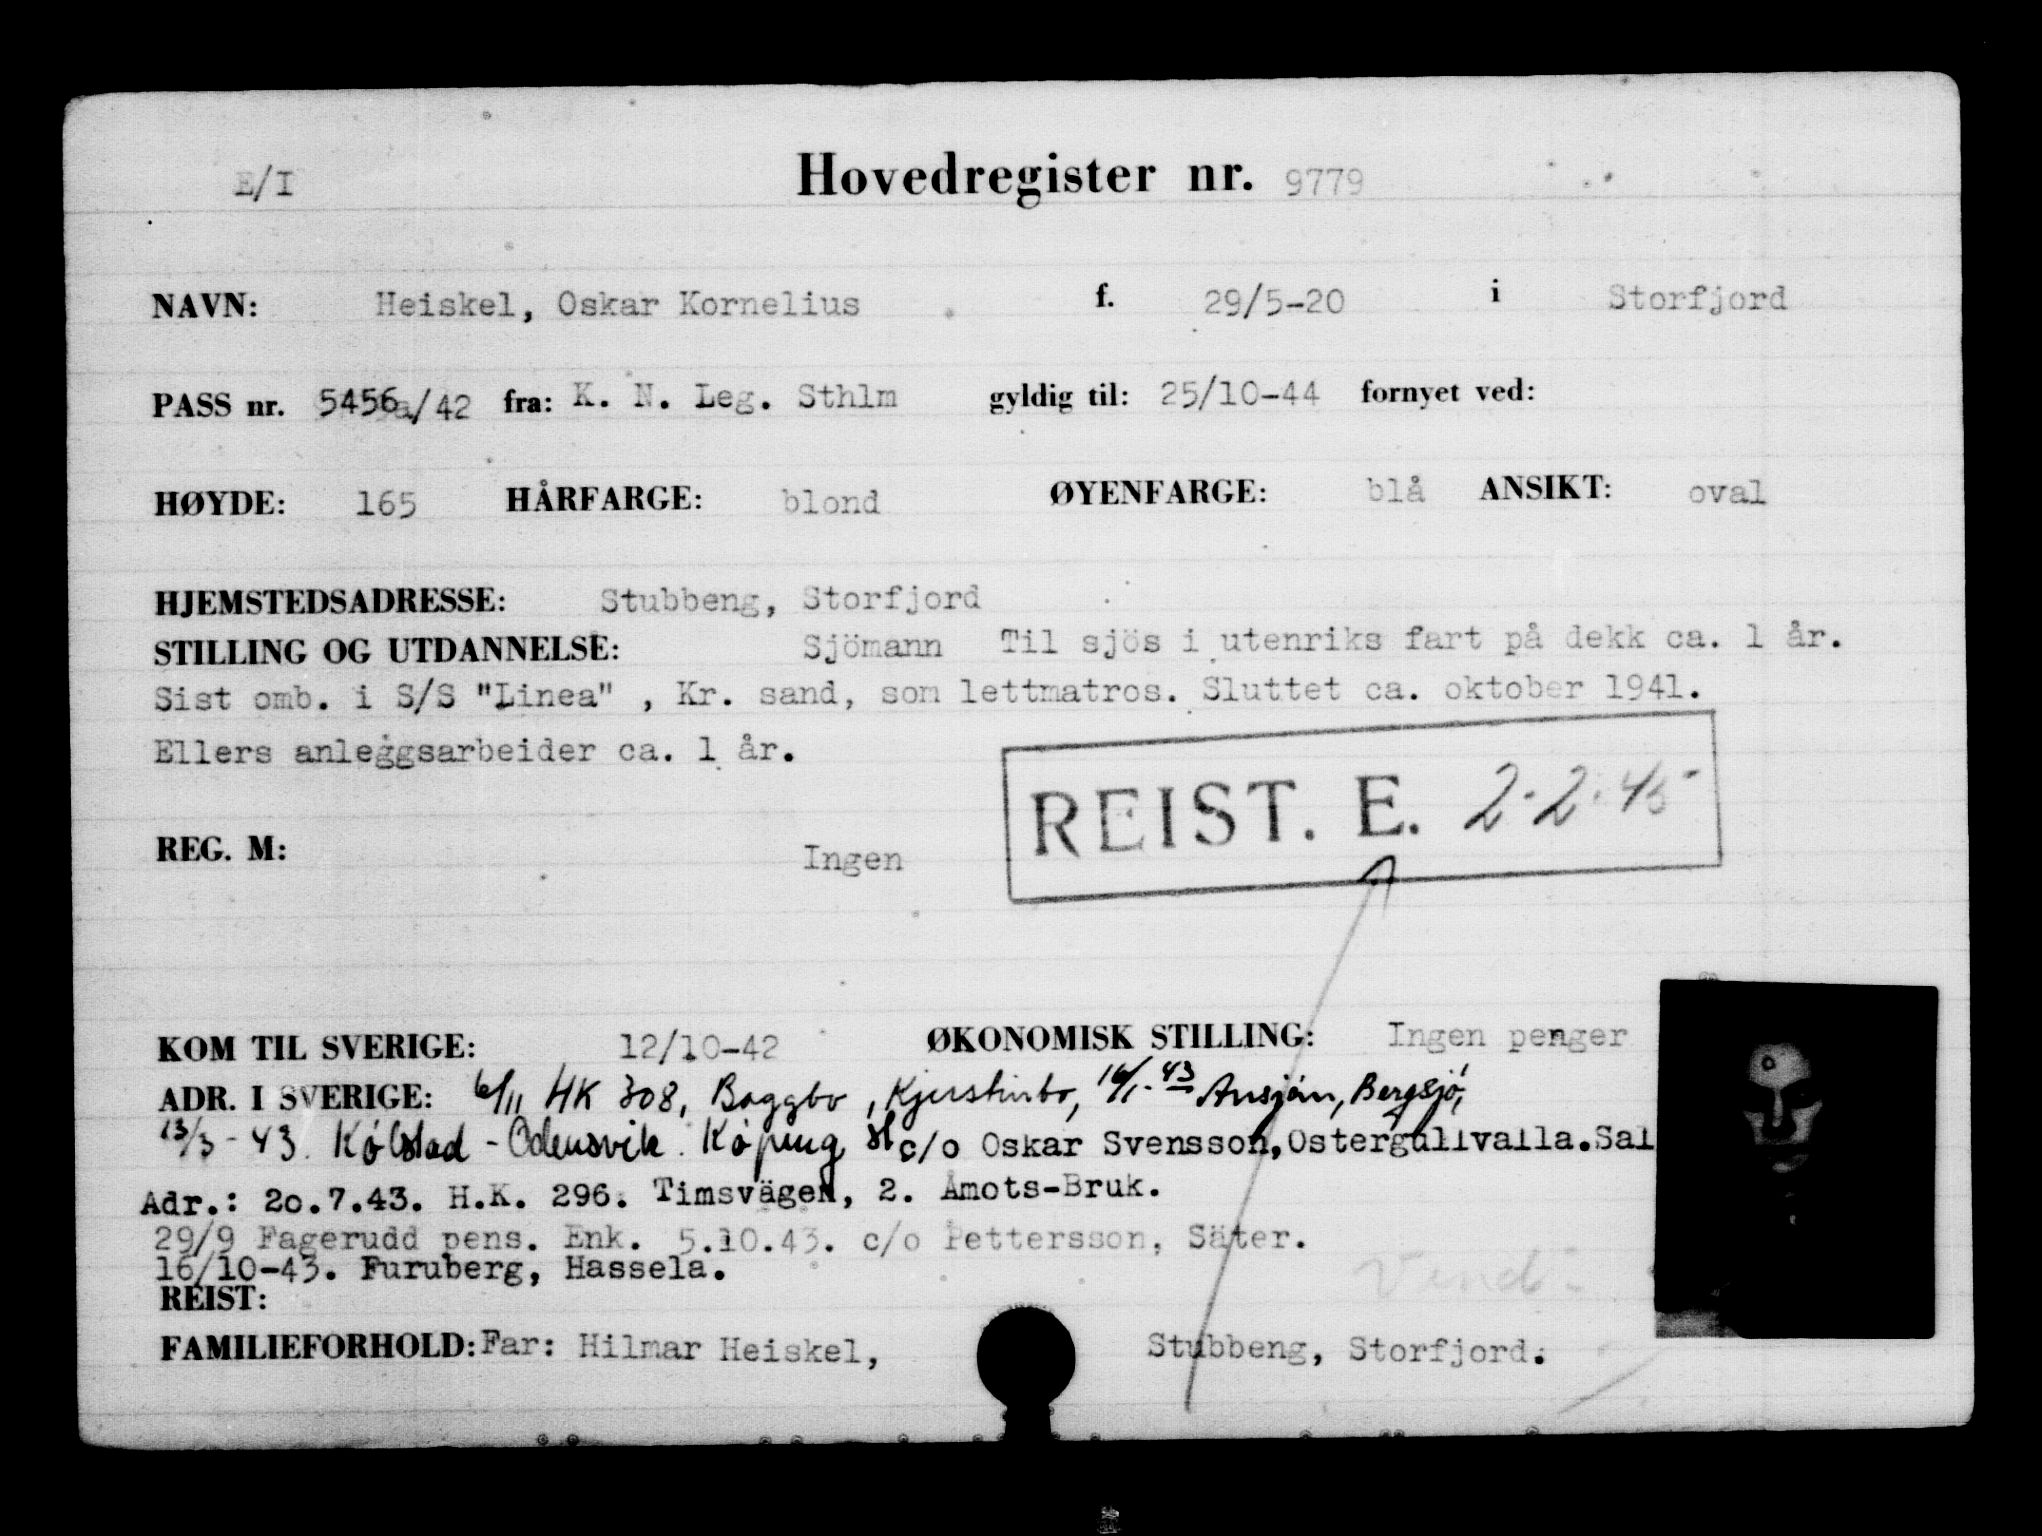 E/I Hovedregister nr. 9779
NAVN: Heiskel, Oskar Kornelius f. 29/5-20 i Storfjord
PASS nr. 5456a/42 fra: K. N. Leg. Sthlm gyldig til: 25/10-44 fornyet ved:
HØYDE: 165 HÅRFARGE: blond ØYENFARGE: blå ANSIKT: oval
HJEMSTEDSADRESSE: Stubbeng, Storfjord
STILLING OG UTDANNELSE: Sjömann Til sjös i utenriks fart på dekk ca. 1 år.
Sist omb. i S/S "Linea" , Kr. sand, som lettmatros. Sluttet ca. oktober 1941.
Ellers anleggsarbeider ca. 1 år.
REIST. E. 2.2.45
REG. M: Ingen
KOM TIL SVERIGE: 12/10-42 ØKONOMISK STILLING: Ingen penger
ADR. I SVERIGE: 6/11 HK 308, Baggbo, 16/1-43 Ansjön, Bergsjö,
13/3-43. Kölstad - Odensvik. Köping c/o Oskar Svensson,Ostergullvalla.Sal
Adr.: 20.7.43. H.K. 296. Timsvägen, 2. Åmots-Bruk.
29/9 Fagerudd pens. Enk. 5.10.43. c/o Pettersson, Säter.
16/10-43. Furuberg, Hassela.
Vend
REIST:
FAMILIEFORHOLD: Far: Hilmar Heiskel, Stubbeng, Storfjord.